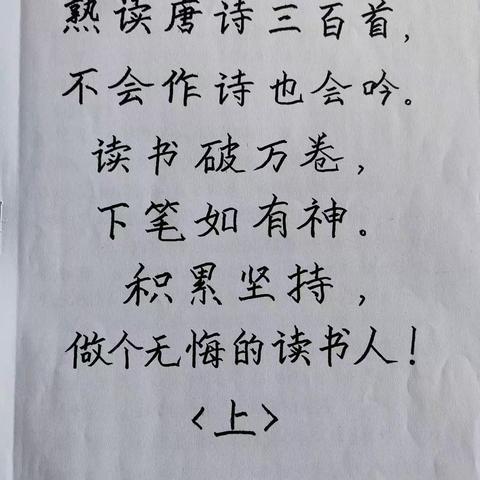 熟读唐诗三百首，
不会作诗也会吟。
读书破万卷，
下笔如有神。
积累坚持，
做个无悔的读书人！
<上>